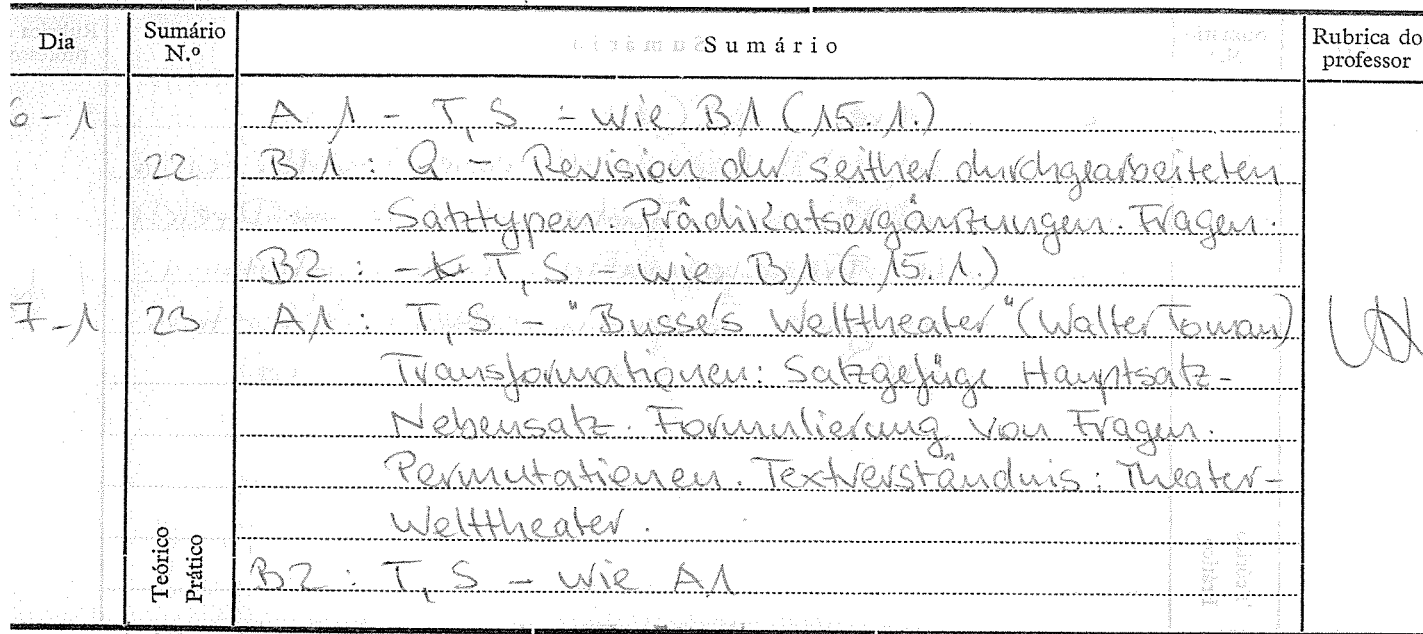 Dia Sumário N.º Sumário Rubrica do professor
6-1 A1 - T, S - wie B1 (15.1.)
22 B1 : Q - Revision der seither durchgearbeiteten
Satztypen. Prädikatsergänzungen. Fragen.
B2 : - T, S - wie B1 (15.1.)
7-1 23 A1 : T, S - "Busse's Welttheater" (Walter Toman)
Transformationen: Satzgefüge Hauptsatz-
Nebensatz. Formulierung von Fragen.
Permutationen. Textverständnis: Theater-
Welttheater.
Teórico
Prático
B2 : T, S - wie A1